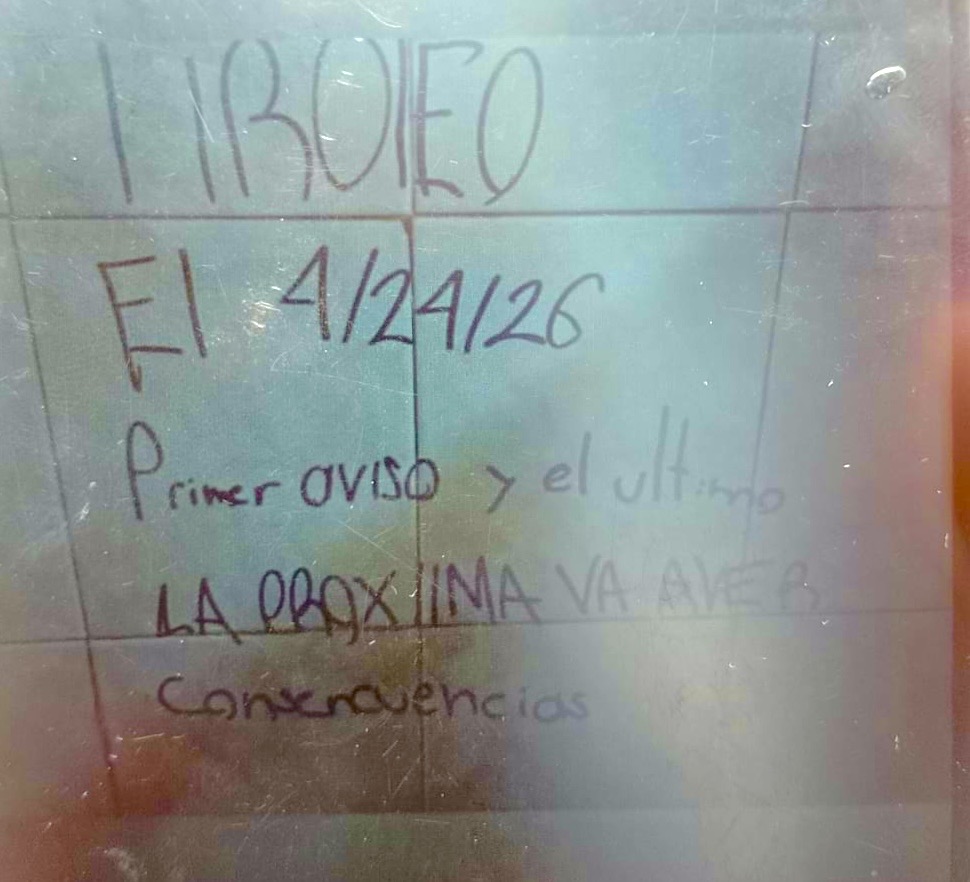 TIROTEO
El 4/24/26
Primer aviso y el ultimo
LA PROXIMA VA AVER
Consencuencias